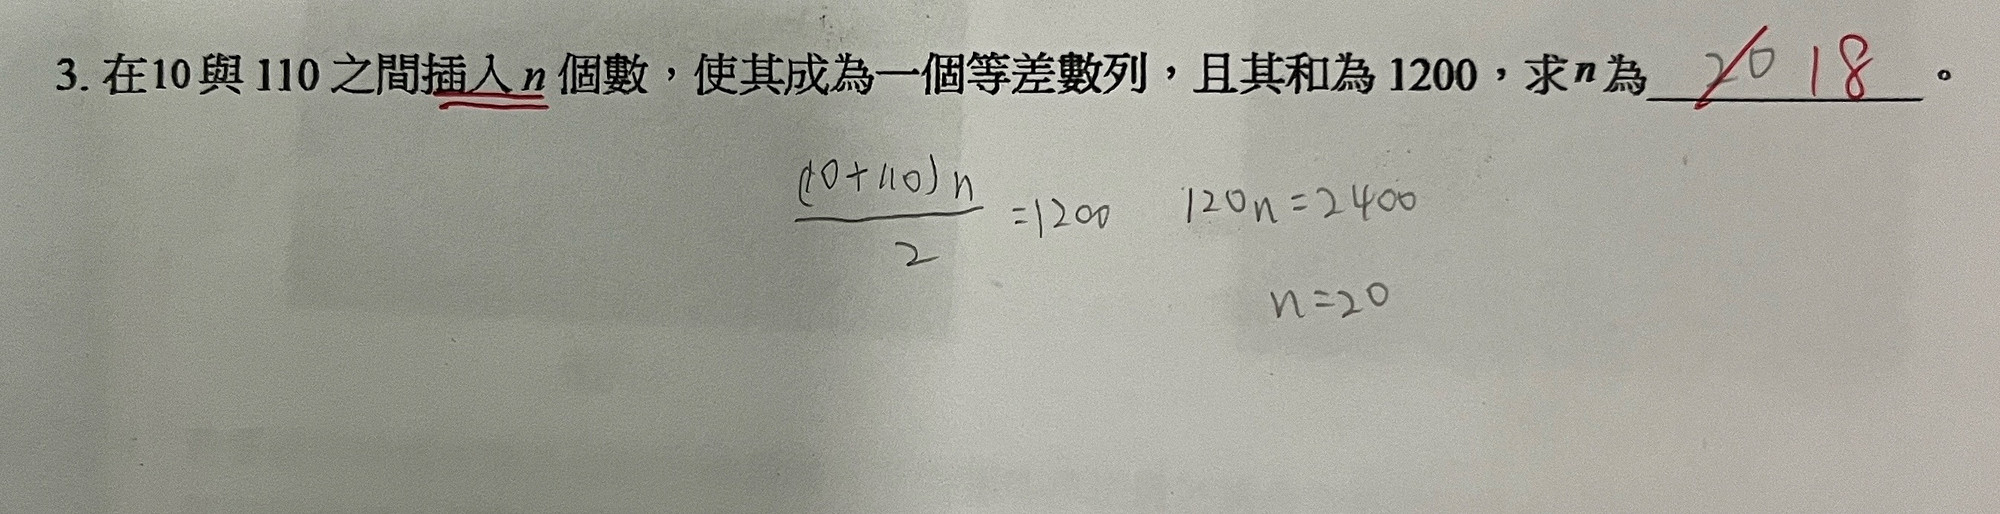 3. 在10與110之間插入n個數，使其成為一個等差數列，且其和為1200，求n為 20 18 。
(10+110)n
2
=1200
120n=2400
n=20